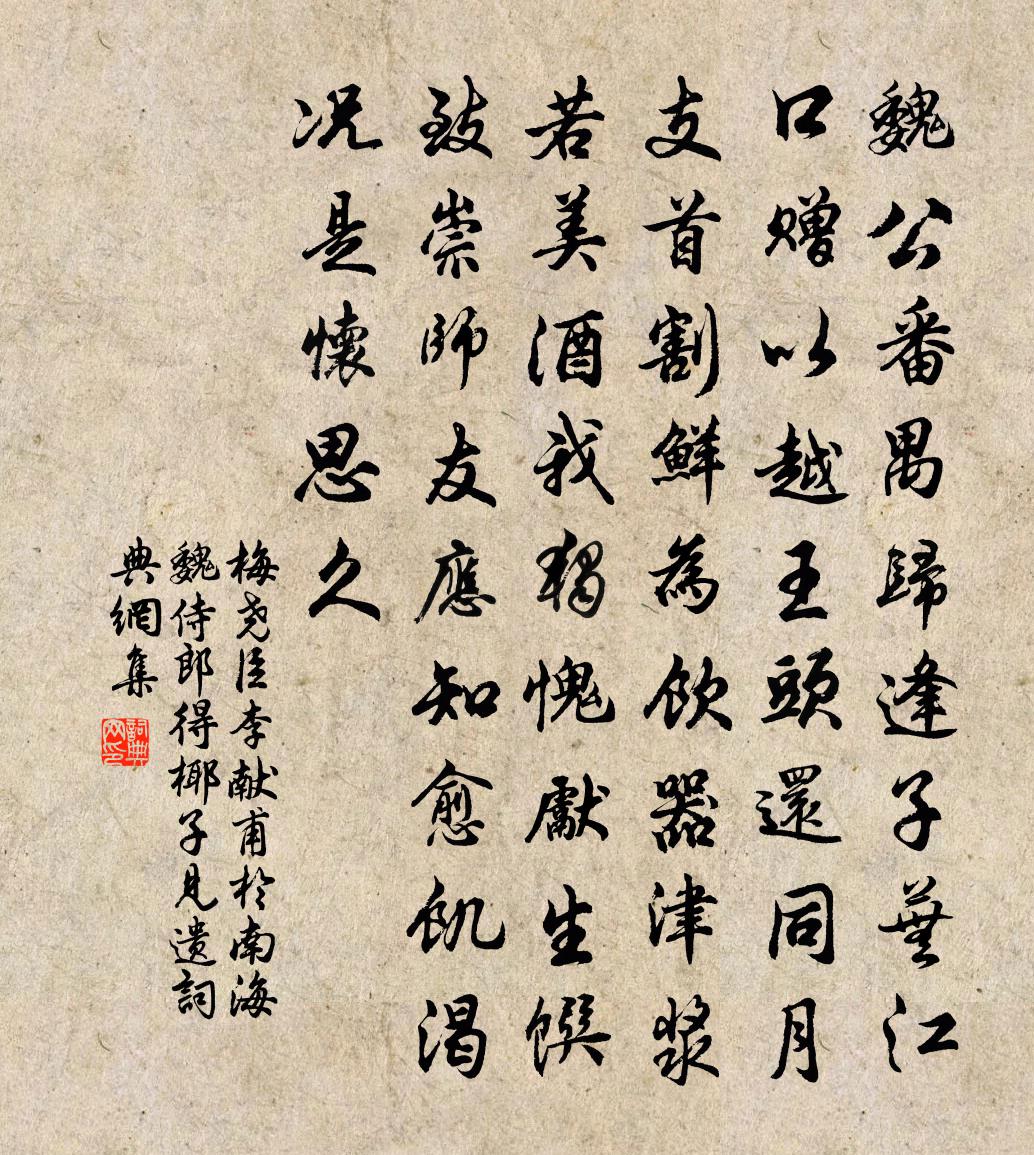 魏公番禺歸逢子蕪江
口贈以越王頭還同月
支首割鮮為飲器津漿
若美酒我獨愧獻生饌
致崇師友應知愈飢渴
况是懷思久
梅尧臣李献甫於南海
魏侍郎得椰子見遺詞
典網集
詞典網印